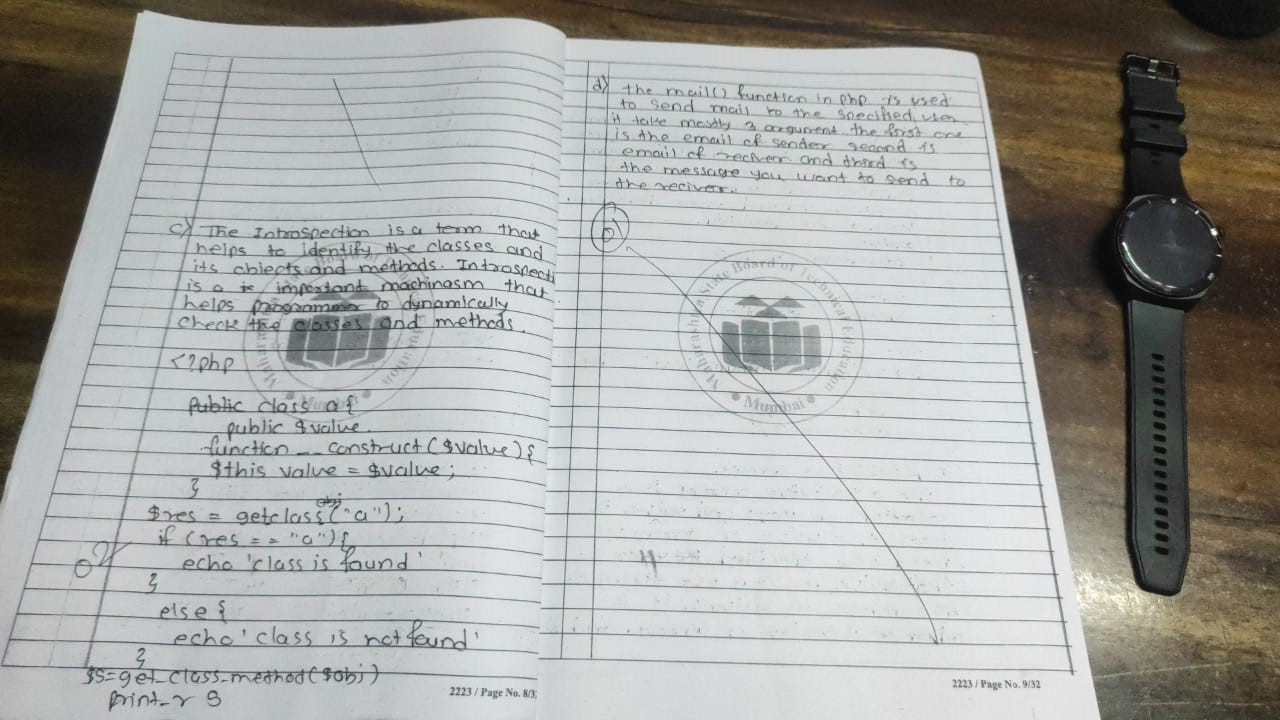 c) The Introspection is a term that
helps to identify the classes and
its objects and methods. Introspecti
is a important machinasm that
helps programmer to dynamically
check the classes and methods.
<?php
Public class a {
public $value.
function __construct($value) {
$this value = $value;
}
$res = getclass("a");
if (res == "a") {
echo 'class is found'
}
else {
echo 'class is not found'
}
$s=get_class_method($obj)
print_r s
02
2223 / Page No. 8/3
d) the mail() function in php is used
to send mail to the specified user.
it take mostly 3 argument the first one
is the email of sender second is
email of reciver and third is
the message you want to send to
the reciver.
0
Maharashtra State Board of Technical Education
Mumbai
2223 / Page No. 9/32